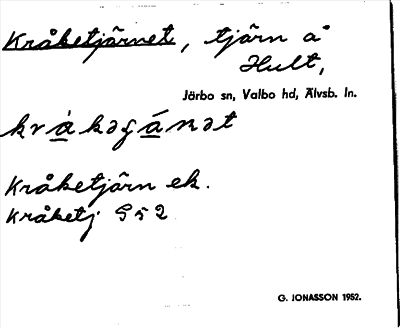 Kråketjärnet, tjärn å
Hult,
Järbo sn, Valbo hd, Älvsb. ln.
kråkəgánət
Kråketjärn ek.
Kråketj G 5 2
G. JONASSON 1952.